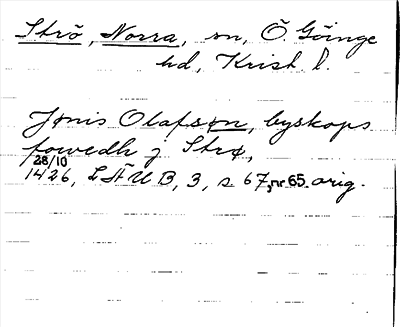 Strö, Norra, sn, Ö. Göinge
hd, Krist. l.
Jönis Olafsøn, byskops
fowedh j Strø,
28/10
1426, LÄUB, 3, s 67, nr 65. orig.